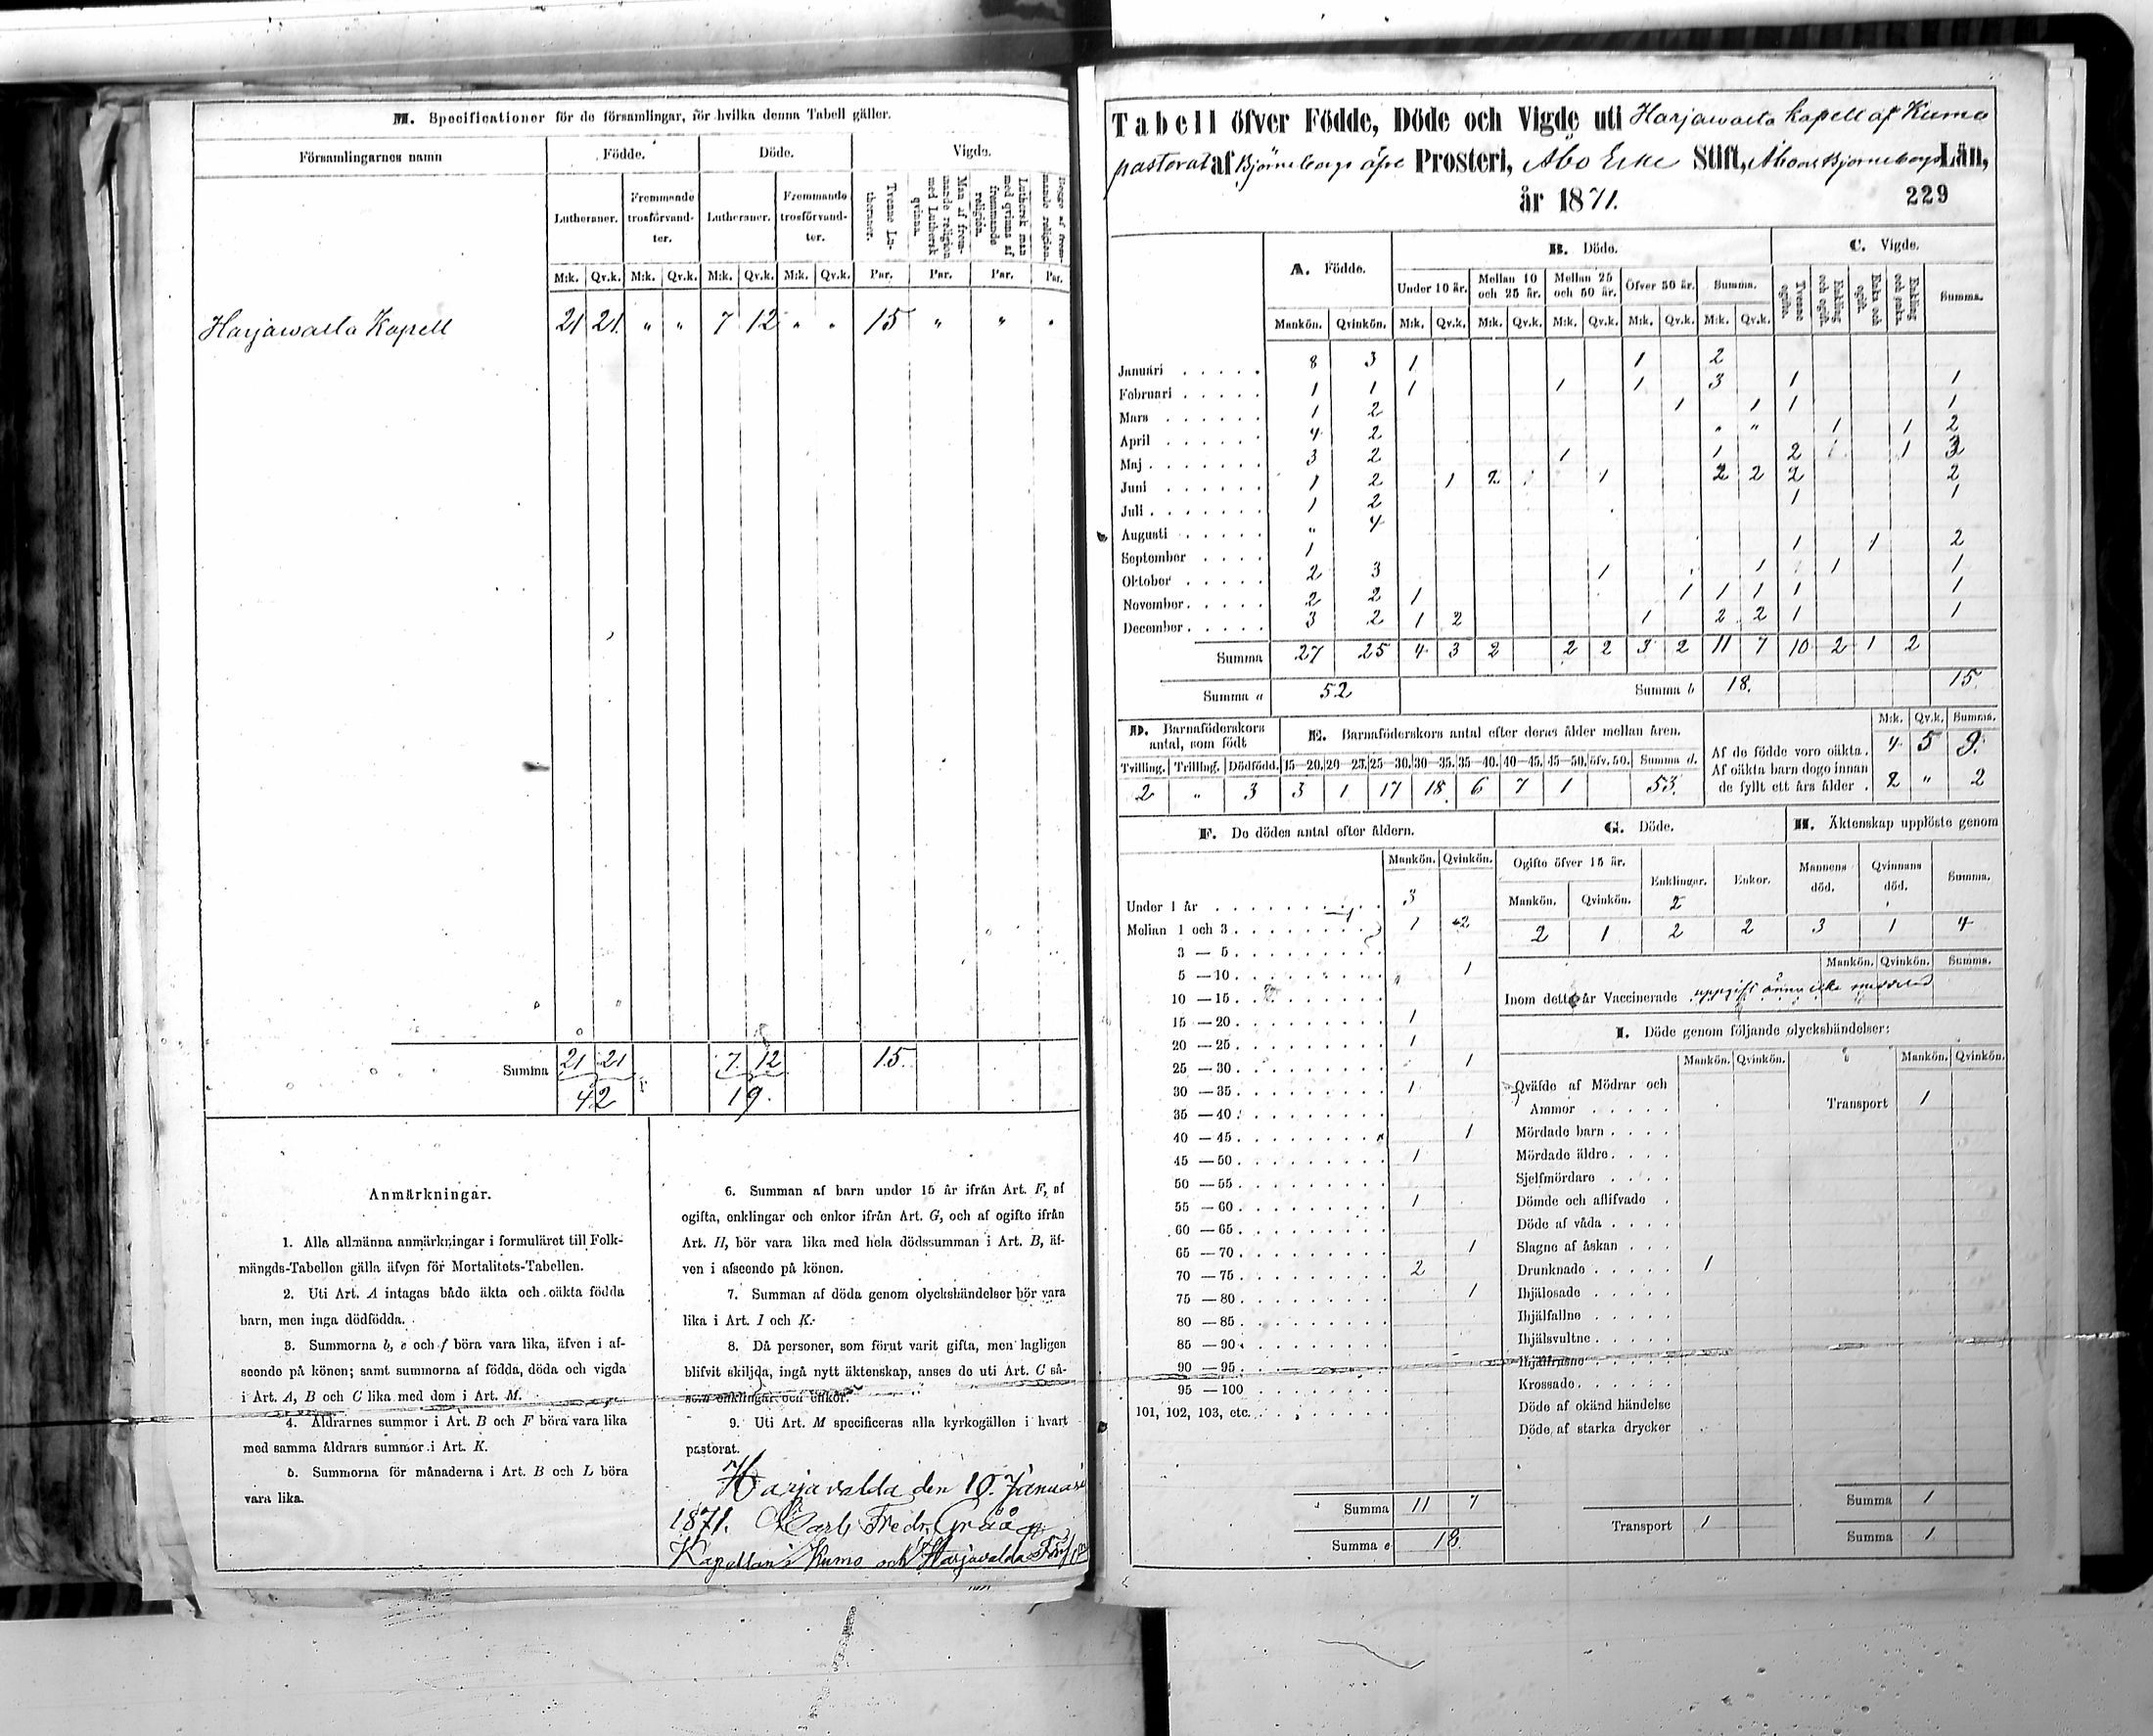 M. Specificationer för de församlingar, för hvilka denna Tabell gäller.
Församlingarnes namn Födde. Döde. Vigde.
Lutheraner. Fremmande trosförvandter. Lutheraner. Fremmande trosförvandter. Tvenne Lutheraner. Man af fremmande religion med Luthersk qvinna. Luthersk man med qvinna af fremmande religion. Begge af fremmande religion.
M:k. Qv.k. M:k. Qv.k. M:k. Qv.k. M:k. Qv.k. Par. Par. Par. Par.
Harjawalta Kapell 21 21 " " 7 12 " " 15 " " "
Summa 21 21 7 12 15.
42 19.
Anmärkningar.
1. Alla allmänna anmärkningar i formuläret till Folk-
mängds-Tabellen gälla äfven för Mortalitets-Tabellen.
2. Uti Art. A intagas både äkta och oäkta födda
barn, men inga dödfödda.
3. Summorna b, e och f böra vara lika, äfven i af-
seende på könen; samt summorna af födda, döda och vigda
i Art. A, B och C lika med dem i Art. M.
4. Åldrarnes summor i Art. B och F böra vara lika
med samma åldrars summor i Art. K.
5. Summorna för månaderna i Art. B och L böra
vara lika.
6. Summan af barn under 15 år ifrån Art. F, af
ogifta, enklingar och enkor ifrån Art. G, och af ogifte ifrån
Art. H, bör vara lika med hela dödssumman i Art. B, äf-
ven i afseende på könen.
7. Summan af döda genom olyckshändelser bör vara
lika i Art. I och K.
8. Då personer, som förut varit gifta, men lagligen
blifvit skiljda, ingå nytt äktenskap, anses de uti Art. C så-
som enklingar och enkor.
9. Uti Art. M specificeras alla kyrkogällen i hvart
pastorat.
Harjavalda den 10. Januari
1871. Carl Fredr. Gråå
Kapellan i Kumo och Harjavalda
Tabell öfver Födde, Döde och Vigde uti Harjawalta kapell af Kumo
pastorat af Björneborgs öfre Prosteri, Åbo Erke Stift, Åbo och Björneborgs Län,
år 1871. 229
A. Födde. B. Döde. C. Vigde.
Under 10 år. Mellan 10 och 25 år. Mellan 25 och 50 år. Öfver 50 år. Summa. Tvenne ogifte. Enkling och ogift. Enka och ogift. Enkling och enka. Summa.
Mankön. Qvinkön. M:k. Qv.k. M:k. Qv.k. M:k. Qv.k. M:k. Qv.k. M:k. Qv.k.
Januari 8 3 1 1 2
Februari 1 1 1 1 1 3 1 1
Mars 1 2 1 1 1 1
April 4 2 " " 1 1 2
Maj 3 2 1 1 2 1 3
Juni 1 2 1 2 1 2 2 2 2
Juli 1 2 1 1
Augusti " 4
September 1 1 1 2
Oktober 2 3 1 1 1 1
November 2 2 1 1 1 1 1 1
December 3 2 1 2 1 2 2 1 1
Summa 27 25 4 3 2 2 2 3 2 11 7 10 2 1 2
Summa a 52 Summa b 18. 15.
D. Barnaföderskors antal, som födt E. Barnaföderskors antal efter deras ålder mellan åren. M:k. Qv.k. Summa.
Tvilling. Trilling. Dödfödd. 15—20. 20—25. 25—30. 30—35. 35—40. 40—45. 45—50. öfv. 50. Summa d.
2 " 3 3 1 17 18 6 7 1 53.
Af de födde voro oäkta. 4 5 9.
Af oäkta barn dogo innan
de fyllt ett års ålder . 2 " 2
F. De dödes antal efter åldern.
Mankön. Qvinkön.
Under 1 år 3
Mellan 1 och 3 1 2
3 — 5
5 — 10 1
10 — 15
15 — 20 1
20 — 25 1
25 — 30 1
30 — 35 1
35 — 40
40 — 45 1
45 — 50 1
50 — 55
55 — 60 1
60 — 65
65 — 70 1
70 — 75 2
75 — 80 1
80 — 85
85 — 90
90 — 95
95 — 100
101, 102, 103, etc.
Summa 11 7
Summa e 18.
G. Döde.
Ogifte öfver 15 år. Enklingar. Enkor.
Mankön. Qvinkön. 2
2 1 2 2
H. Äktenskap upplöste genom
Mannens död. Qvinnans död. Summa.
3 1 4
Mankön. Qvinkön. Summa.
Inom detta år Vaccinerade uppgift ännu icke meddelad
I. Döde genom följande olyckshändelser:
Mankön. Qvinkön. Mankön. Qvinkön.
Qväfde af Mödrar och
Ammor Transport 1
Mördade barn
Mördade äldre
Sjelfmördare
Dömde och aflifvade
Döde af våda
Slagne af åskan
Drunknade 1
Ihjälosade
Ihjälfallne
Ihjälsvultne
Ihjälfrusne
Krossade
Döde af okänd händelse
Döde af starka drycker
Summa 1
Transport 1
Summa 1.